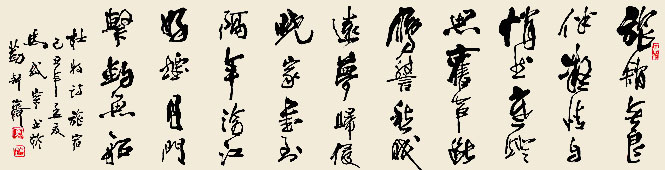 旅館無良
伴凝情自
悄然寒燈
思舊事斷
雁警愁眠
遠夢歸侵
曉家書到
隔年滄江
好煙月門
繫釣魚船
杜牧詩旅宿
己丑年夏
馬書於
勤耕齋